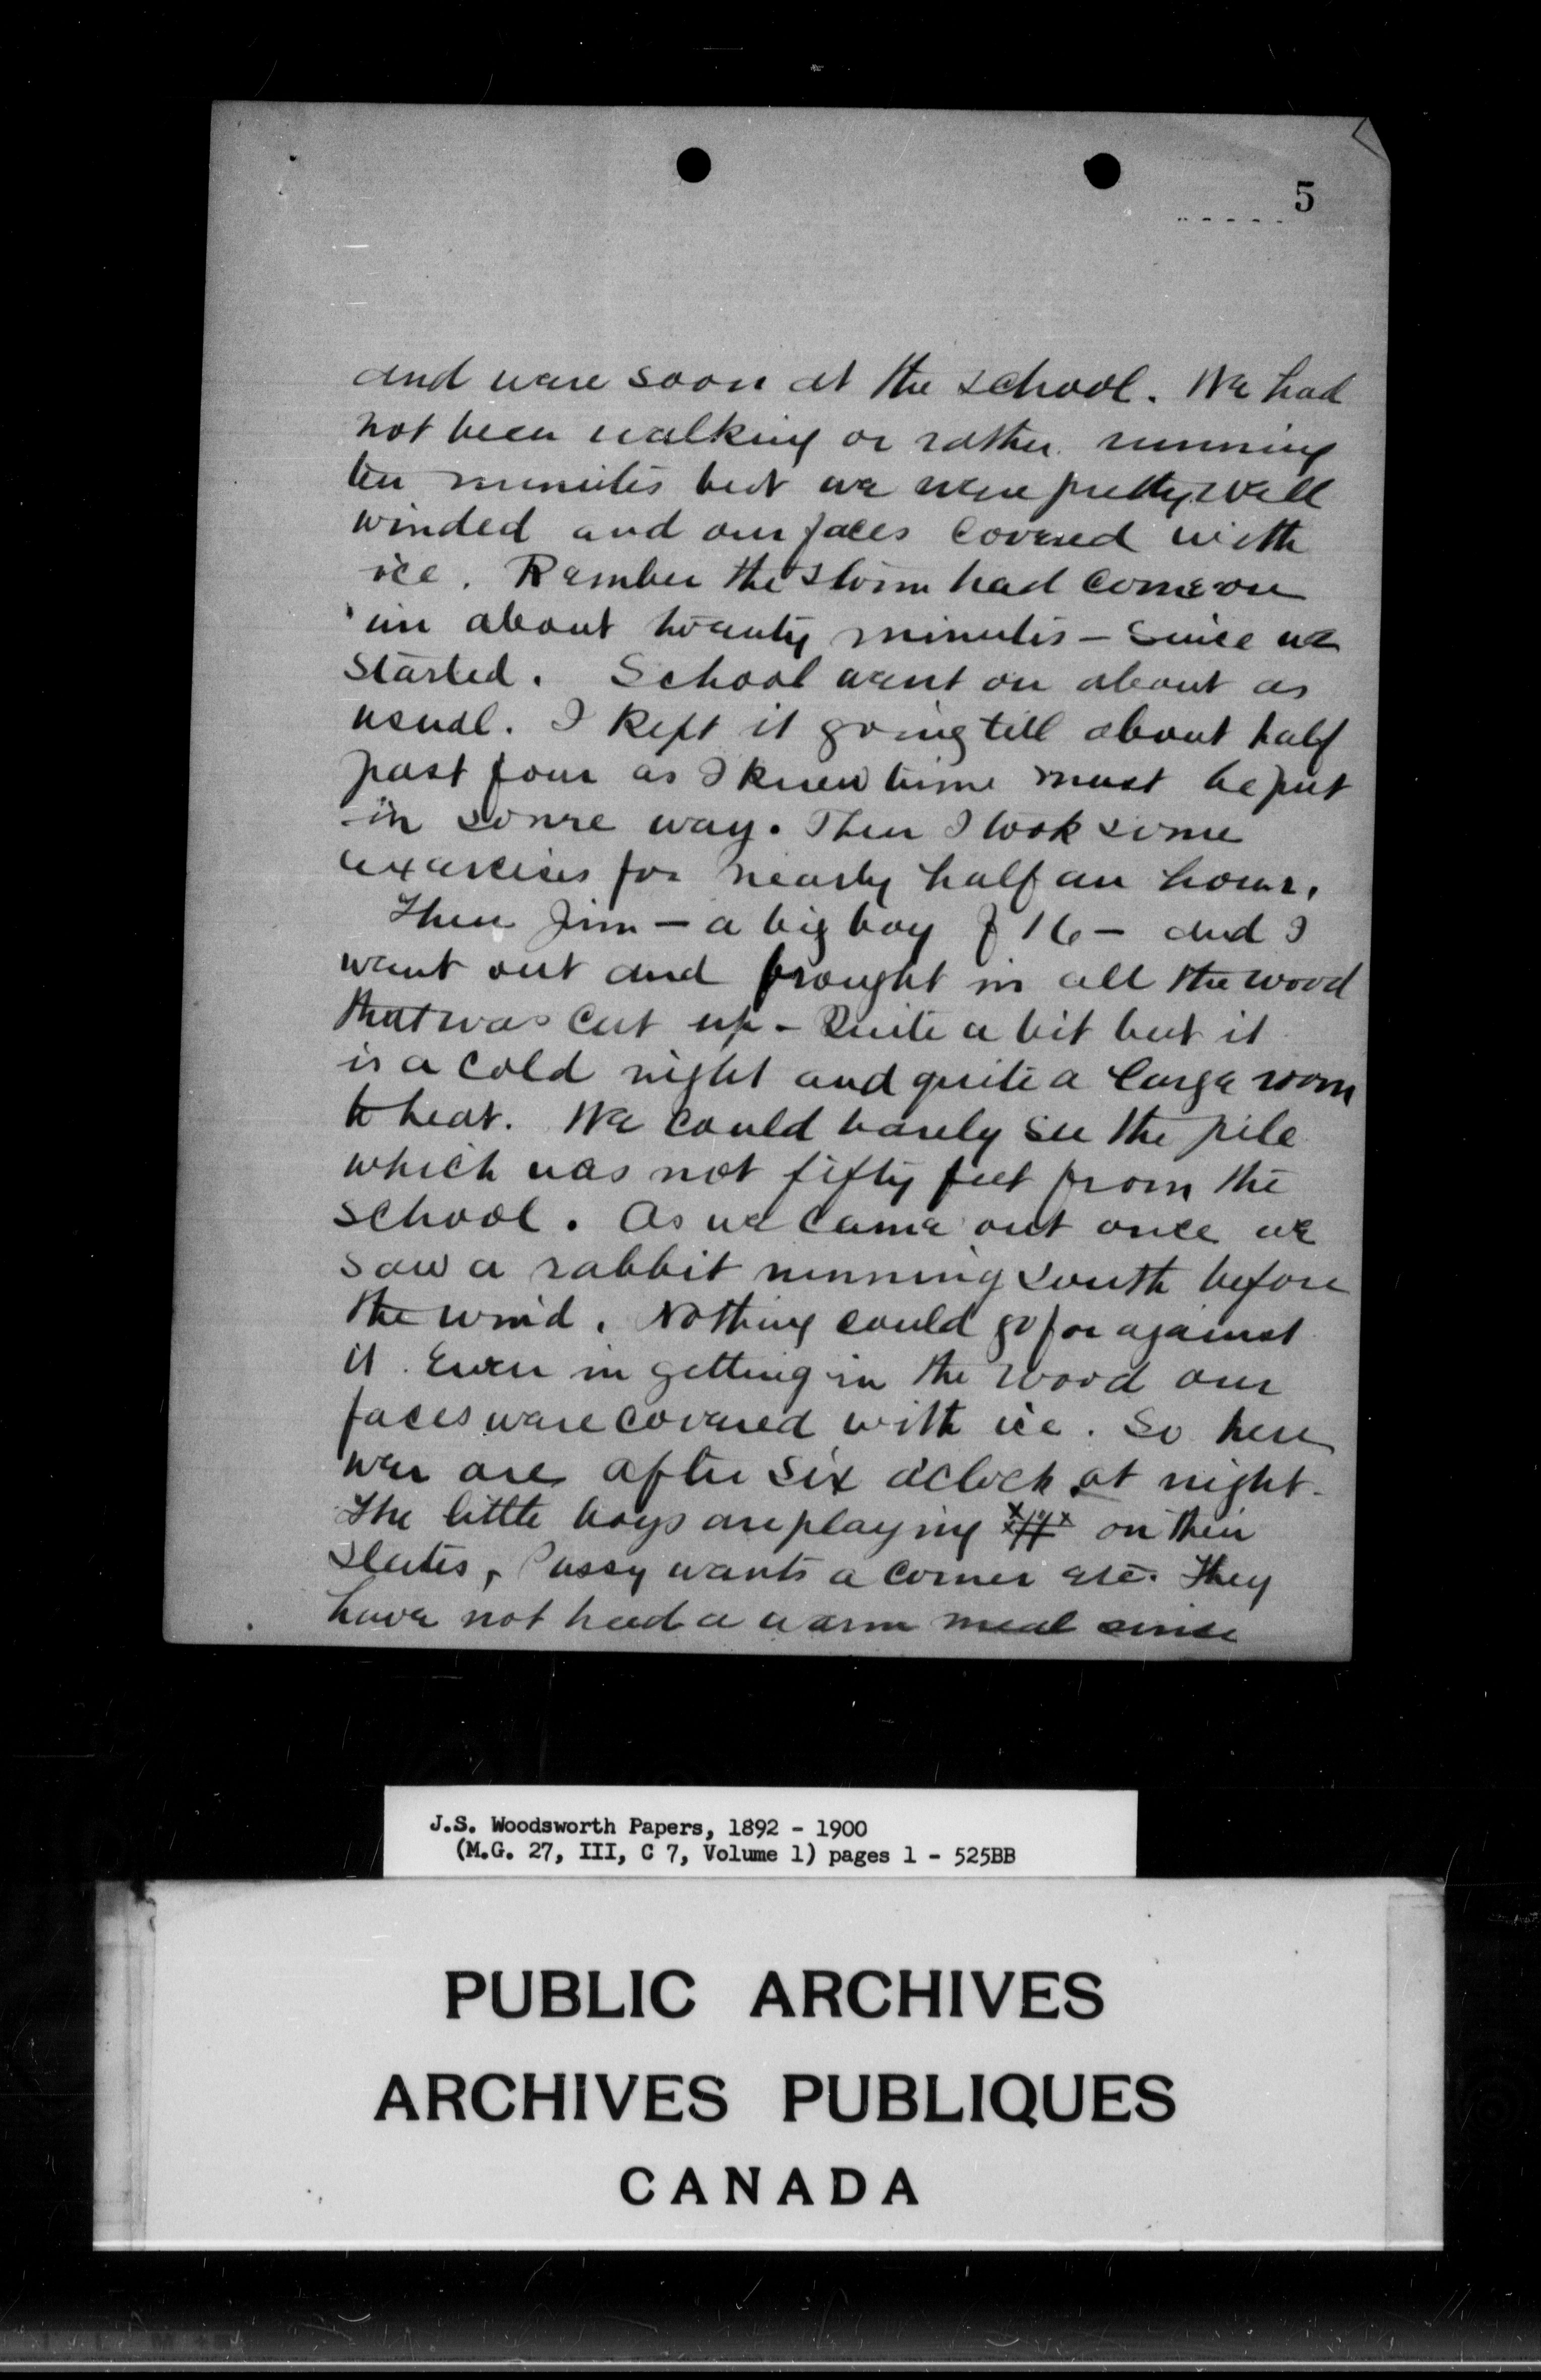 5
and were soon at the school. We had
not been walking or rather running
ten minutes but we were pretty well
winded and our faces covered with
ice. Rember the storm had come on
in about twenty minutes - since we
started. School went on about as
usual. I kept it going till about half
past four as I knew time must be put
in some way. Then I took some
exercises for nearly half an hour.
Then Jim - a big boy of 16 - and I
went out and brought in all the wood
that was cut up - Quite a bit but it
is a cold night and quite a large room
to heat. We could barely see the pile
which was not fifty feet from the
school. As we came out once we
saw a rabbit running south before
the wind. Nothing could go far against
it. Even in getting in the wood our
faces were covered with ice. So here
we are after six o'clock at night.
The little boys are playing on their
slates, Pussy wants a corner etc. They
have not had a warm meal since
J.S. Woodsworth Papers, 1892 - 1900
(M.G. 27, III, C 7, Volume 1) pages 1 - 525BB
PUBLIC ARCHIVES
ARCHIVES PUBLIQUES
CANADA